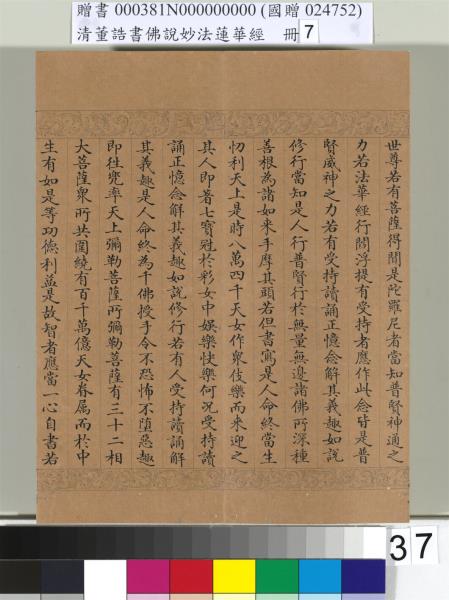 贈書 000381N000000000 (國贈 024752)
清董誥書佛說妙法蓮華經 冊 7
世尊若有菩薩得聞是陀羅尼者當知普賢神通之
力若法華經行閻浮提有受持者應作此念皆是普
賢威神之力若有受持讀誦正憶念解其義趣如說
修行當知是人行普賢行於無量無邊諸佛所深種
善根為諸如來手摩其頭若但書寫是人命終當生
忉利天上是時八萬四千天女作眾伎樂而來迎之
其人即著七寶冠於彩女中娛樂快樂何況受持讀
誦正憶念解其義趣如說修行若有人受持讀誦解
其義趣是人命終為千佛授手令不恐怖不墮惡趣
即往兜率天上彌勒菩薩所彌勒菩薩有三十二相
大菩薩眾所共圍繞有百千萬億天女眷屬而於中
生有如是等功德利益是故智者應當一心自書若
37